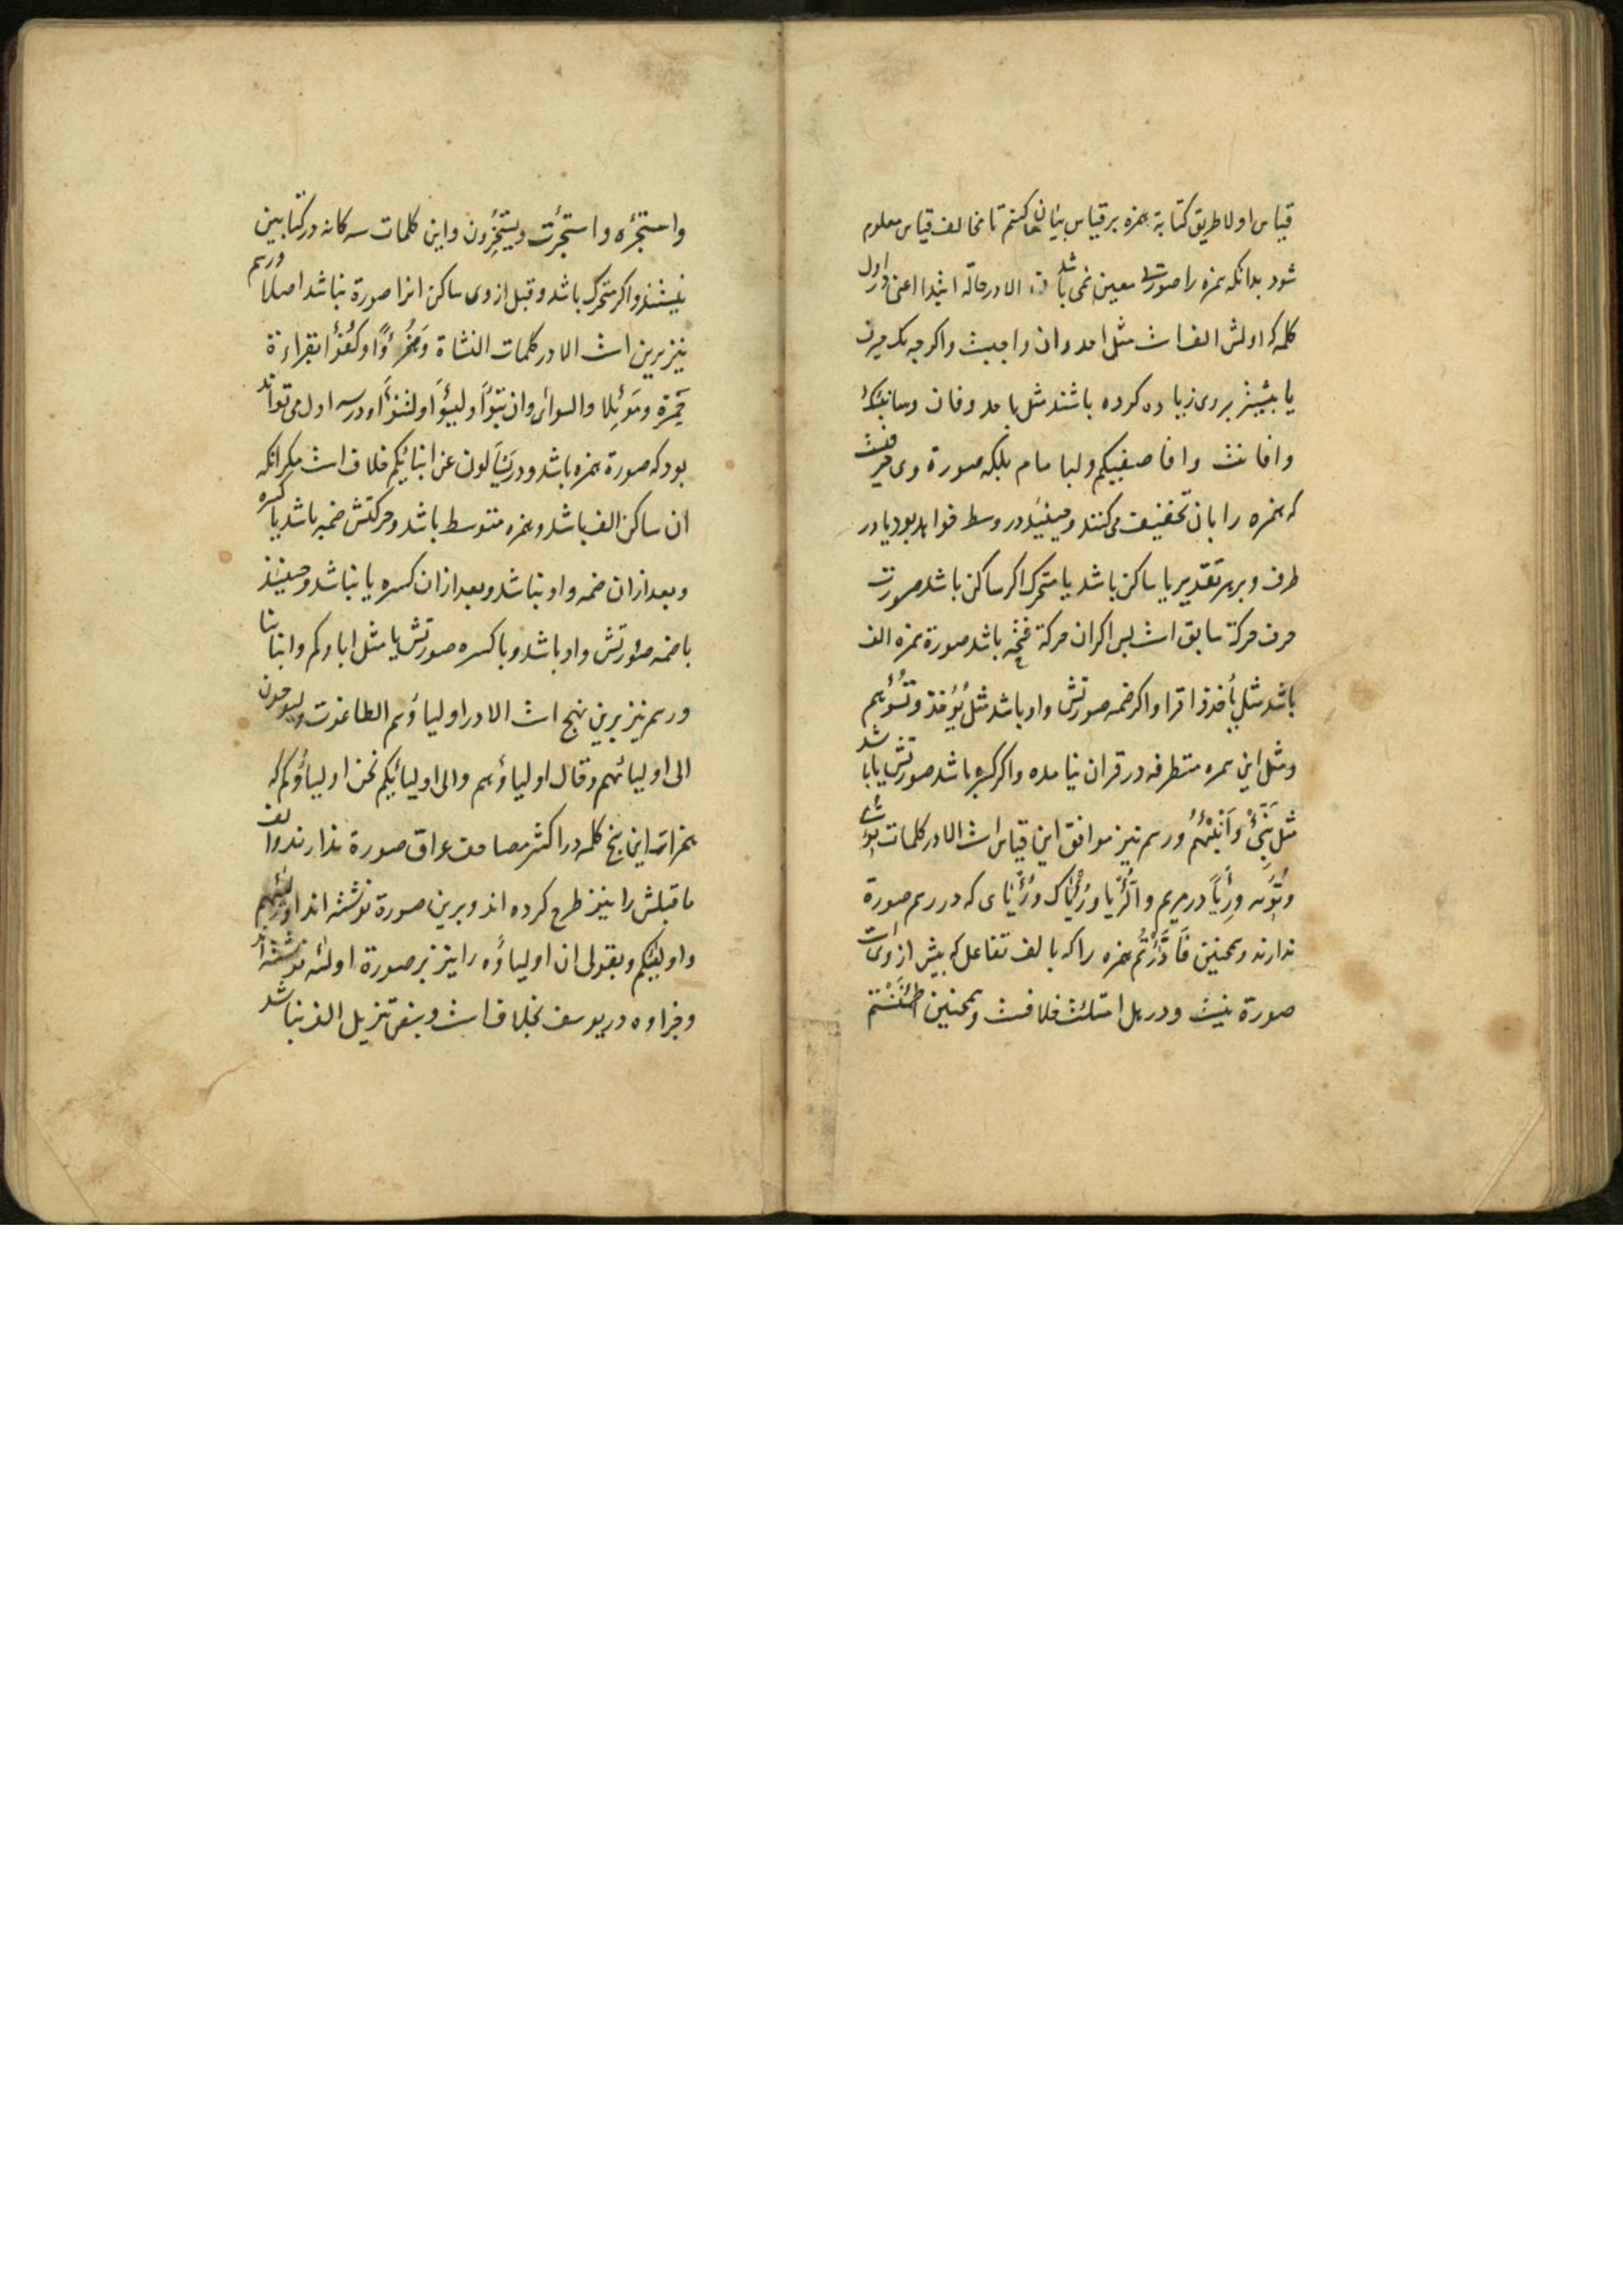 قیاس اولا طریق کتابة همزه بر قیاس بیان کنم تا مخالف قیاس معلوم
شود بدانکه همزه را صورت معین نمی باشد الا در حالة ابتدا اعنی در اول
کلمه که اولش الف است مثل احد وان واجبست واکرچه یک حرف
یا بیشتر بر وی زیاده کرده باشند مثل باحد وفان وسانبئک
وافانت وافاصفیکم ولبامام بلکه صورة وی حرفیست
که همزه را بان تخفیف می کنند وحینئذ در وسط خواهد بود یا در
طرف وبر هر تقدیر یا ساکن باشد یا متحرک اکر ساکن باشد صورت
حرف حرکة سابق است پس اکر ان حرکة فتحه باشد صورة همزه الف
باشد مثل یأخذ واقرا واکر ضمه صورتش واو باشد مثل یؤخذ وتسؤهم
ومثل این همزه متطرفه در قران نیامده واکر کسره باشد صورتش یا باشد
مثل نبئ وانبئهم ورسم نیز موافق این قیاس است الا در کلمات
وتؤیه ورءیا در مریم والرءیا ورءیاک ورءیای که در رسم صورة
ندارند وهمچنین فادارءتم همزه را که با لف تفاعل که پیش از وی است
صورة نیست ودر هل امتلئت خلافست وهمچنین اطمئننتم
واستجره واستجرت ویستخرون واین کلمات سه کانه در کتابین
نیستند واکر متحرک باشد وقبل از وی ساکن انرا صورة نباشد اصلا ورسم
نیز برین است الا در کلمات النشاة وهزوا وکفوا بقراءة
حمزة وموئلا والسوأی وان تبوأ ولیسوأ ولتنوأ ودر سه اول می تواند
بود که صورة همزه باشد ودر یسألون عن انبائکم خلاف است مکر انکه
ان ساکن الف باشد وهمزه متوسط باشد وحرکتش ضمه باشد یا کسره
وبعد از ان ضمه واو نباشد وبعد از ان کسره یا نباشد وحینئذ
با ضمه صورتش واو باشد وبا کسره صورتش یا مثل اباوکم وابنائنا
ورسم نیز برین نهج است الا در اولیاؤهم الطاغوت ولیوحون
الی اولیائهم وقال اولیاؤهم والی اولیائکم نحن اولیاؤکم که
همزات این پنج کلمه در اکثر مصاحف عراق صورة ندارند والف
ماقبلش را نیز طرح کرده اند وبرین صورة نوشته اند اولیئهم
واولیئکم وبقولی ان اولیاؤه را نیز بر صورة اولئه نوشته اند
وجزاوه در یوسف بخلاف است وبنص تنزیل الف نباشد